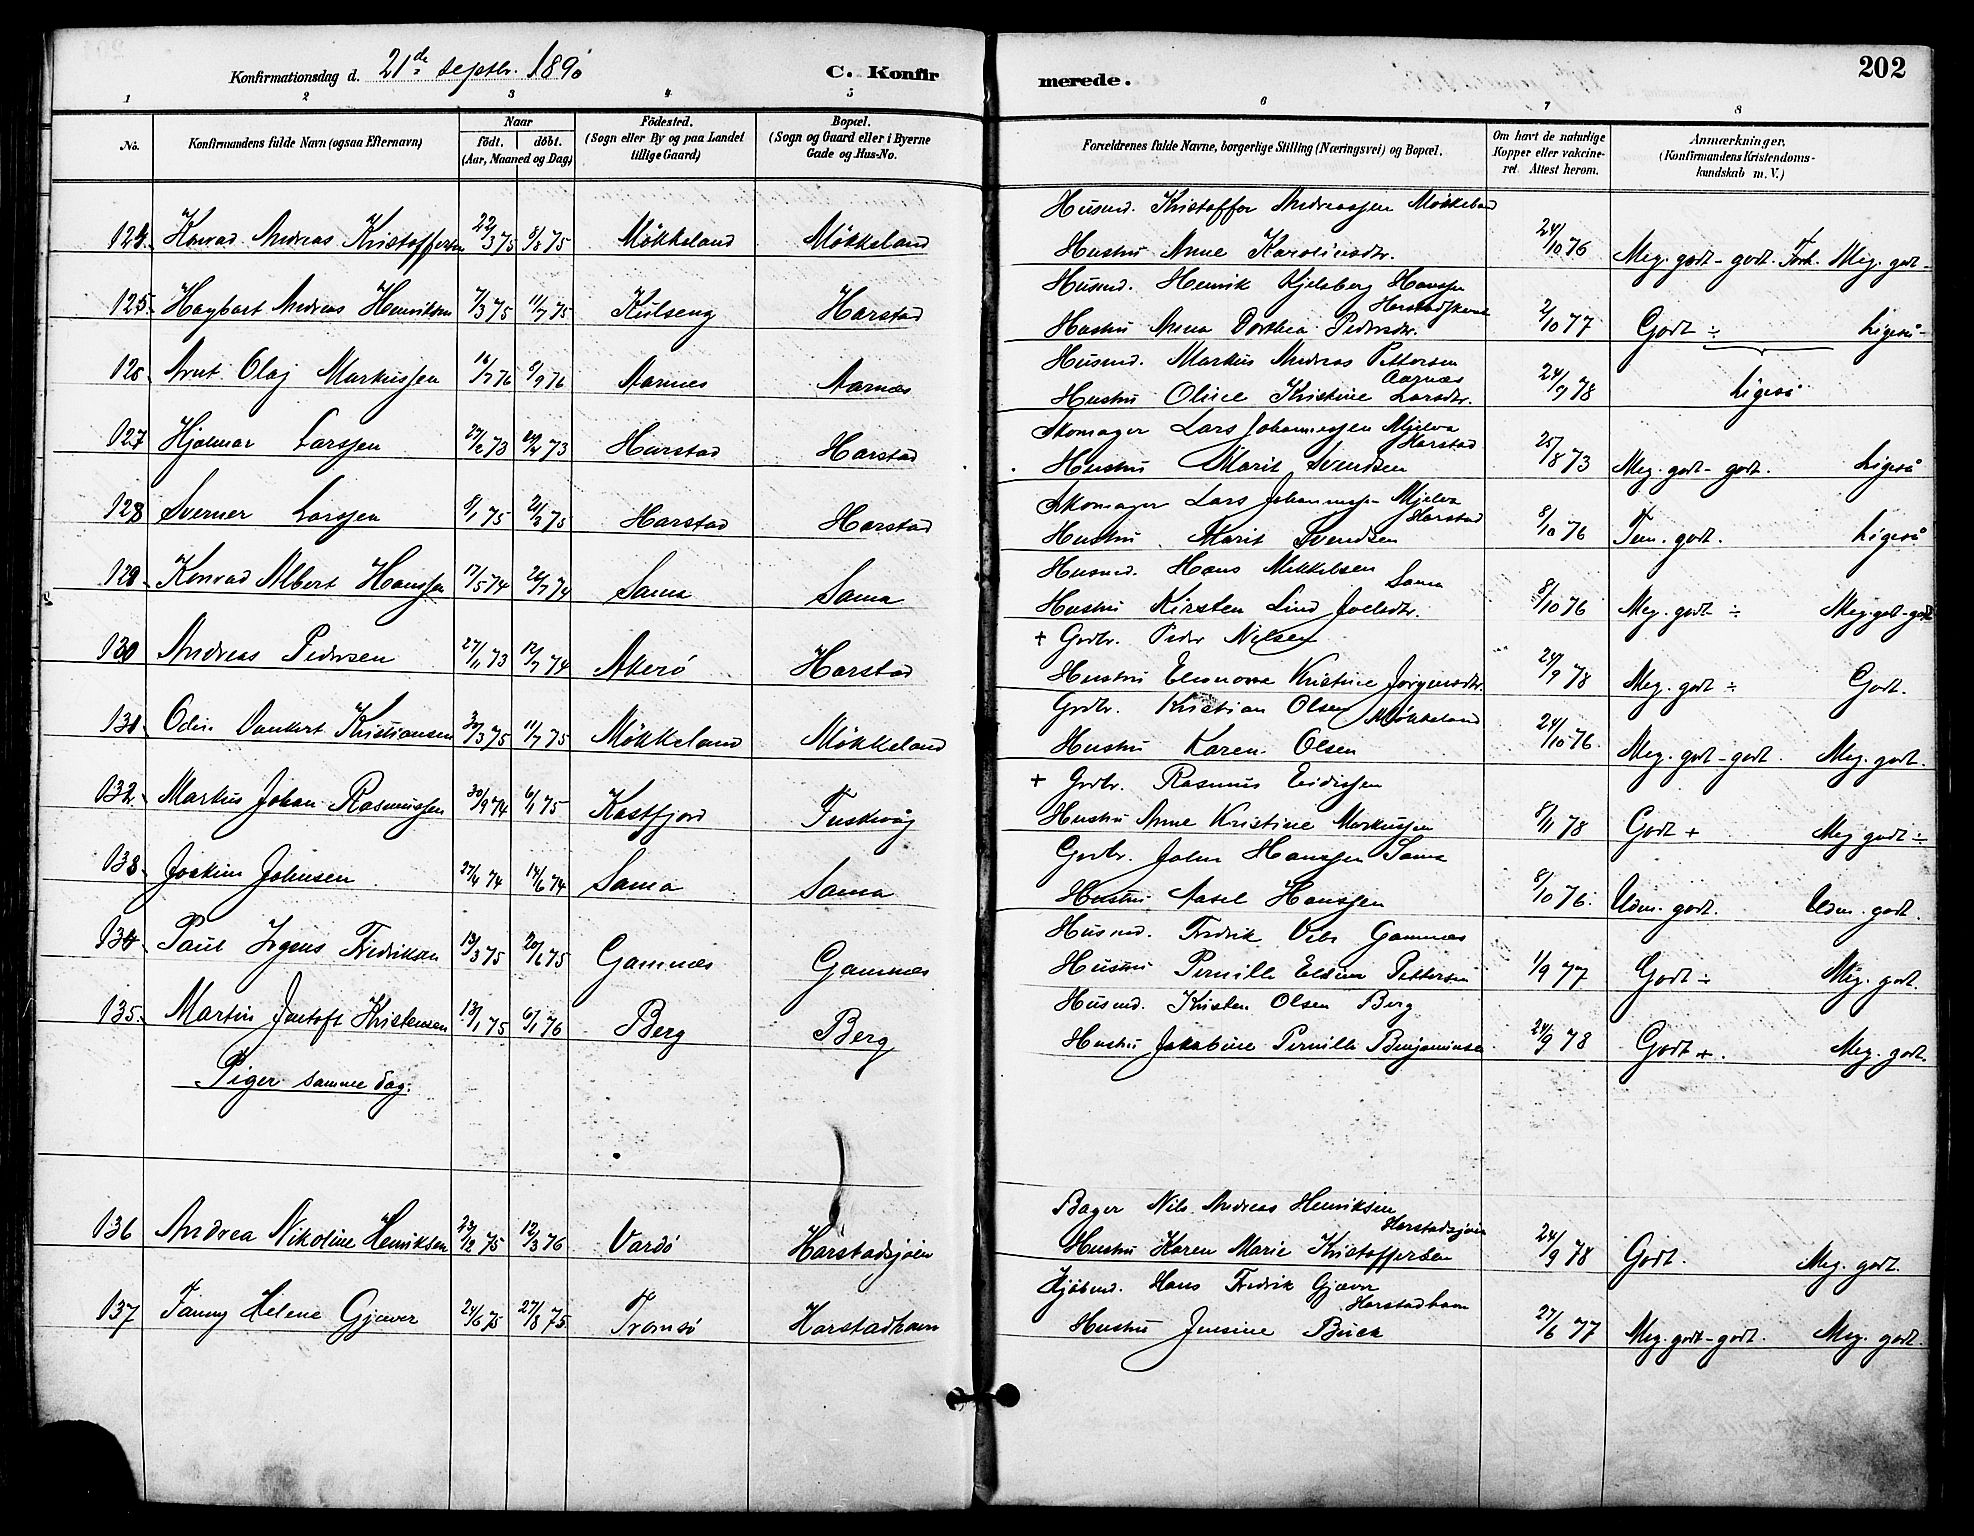 202
Konfirmationsdag d. 21de septbr. 1890
C. Konfirmerede.
1 2 3 4 5 6 7 8
No.
Konfirmandens fulde Navn (ogsaa Efternavn)
Naar
födt. döbt.
(Aar, Maaned og Dag)
Födested.
(Sogn eller By og paa Landet
tillige Gaard)
Bopæl.
(Sogn og Gaard eller i Byerne
Gade og Hus-No.
Forældrenes fulde Navne, borgerlige Stilling (Næringsvei) og Bopæl.
Om havt de naturlige
Kopper eller vakcine-
ret. Attest herom.
Anmærkninger.
(Konfirmandens Kristendoms-
kundskab m. V.)
Husmd. Kristoffer Andreassen Møkkeland
124. Konrad Andreas Kristoffersen 22/3 75 8/8 75 Møkkeland Møkkeland Hustru Anne Karolinsdtr. 24/10 76 Meg. godt - godt. Forh. Meg. godt -
Husmd. Henrik Kjelsberg Hanssen
Harstad
125. Andreas Henriksen 7/3 75 11/7 75 Kulseng Harstad Hustru Anna Dorthea Pedersdtr. 2/10 77 Godt ÷ Ligeså -
Husmd. Markus Andreas Pettersen
Aarnæs
126. Arnt Olaj Markussen 16/7 76 9/9 76 Aarnes Aarnæs Hustru Oline Kristine Larsdtr. 24/9 78 Ligeså
Skomager Lars Johannessen Mjelva
Harstad
127 Hjalmar Larssen 27/2 73 73 Harstad Harstad Hustru Marit Svendsen 25/8 73 Meg. godt - godt. Ligeså
Skomager Lars Johannessen Mjelva
Harstad
128 Sverner Larssen 9/1 75 21/3 75 Harstad Harstad Hustru Marit Svendsen 8/10 76 Tem. godt. Ligeså
Husmd. Hans Mikkelsen
Sama
129. Konrad Albert Hanssen 17/5 74 26/7 74 Sama Sama Hustru Kirsten Lind Joelsdtr. 8/10 76 Meg. godt ÷ Meg. godt - godt
+ Gdbr. Peder Nilsen
130 Andreas Pedersen 27/11 73 12/7 74 Akerö Harstad Hustru Eleonora Kristine Jørgensdtr. 24/9 78 Meg. godt ÷ Godt.
Grdbr. Kristian Olsen Møkkeland
131. Odin Kristiansen 30/3 75 11/7 75 Møkkeland Møkkeland Hustru Karen Olsen 24/10 76. Meg. godt - godt. Meg. godt.
+ Grdbr. Rasmus Eidissen
132. Markus Johan Rasmussen 30/9 74 6/1 75 Kastfjord Fuskevåg Hustru Anne Kristine Markussen 8/11 78 Godt + Meg godt ÷
Grdbr. John Hanssen Sama
133. Joakim Johnsen 27/4 74 14/6 74 Sama Sama Hustru Aasel Hanssen 8/10 76. Udm. godt. Udm. godt.
Husmd. Fredrik Gamnæs
134. Paul Irgens Fredriksen 13/3 75 20/6 75 Gamnæs Gamnæs Hustru Pernille Elsine Pettersen 1/9 77 Godt ÷ Meg. godt.
Husmd. Kristen Olsen Berg
135. Martin Jentoft Kristensen 13/1 75 6/1 76 Berg Berg Hustru Jakobine Pernille Benjaminsen 24/9 78 Godt + . Meg. godt.
Piger samme dag.
Bager Nils Andreas Henriksen
Harstadsjøen
136 Andrea Nikoline Henriksen 23/12 75 12/3 76 Vardö Harstadsjøen Hustru Karen Marie Kristoffersen 24/9 78 Godt. Meg. godt.
Kjøbmd. Hans Fredrik Gjæver
Harstadhavn
137 Fanny Helene Gjæver 24/6 75 27/8 75. Tromsö Harstadhavn Hustru Jensine Buck 27/6 77 Meg. godt - godt. Meg. godt.